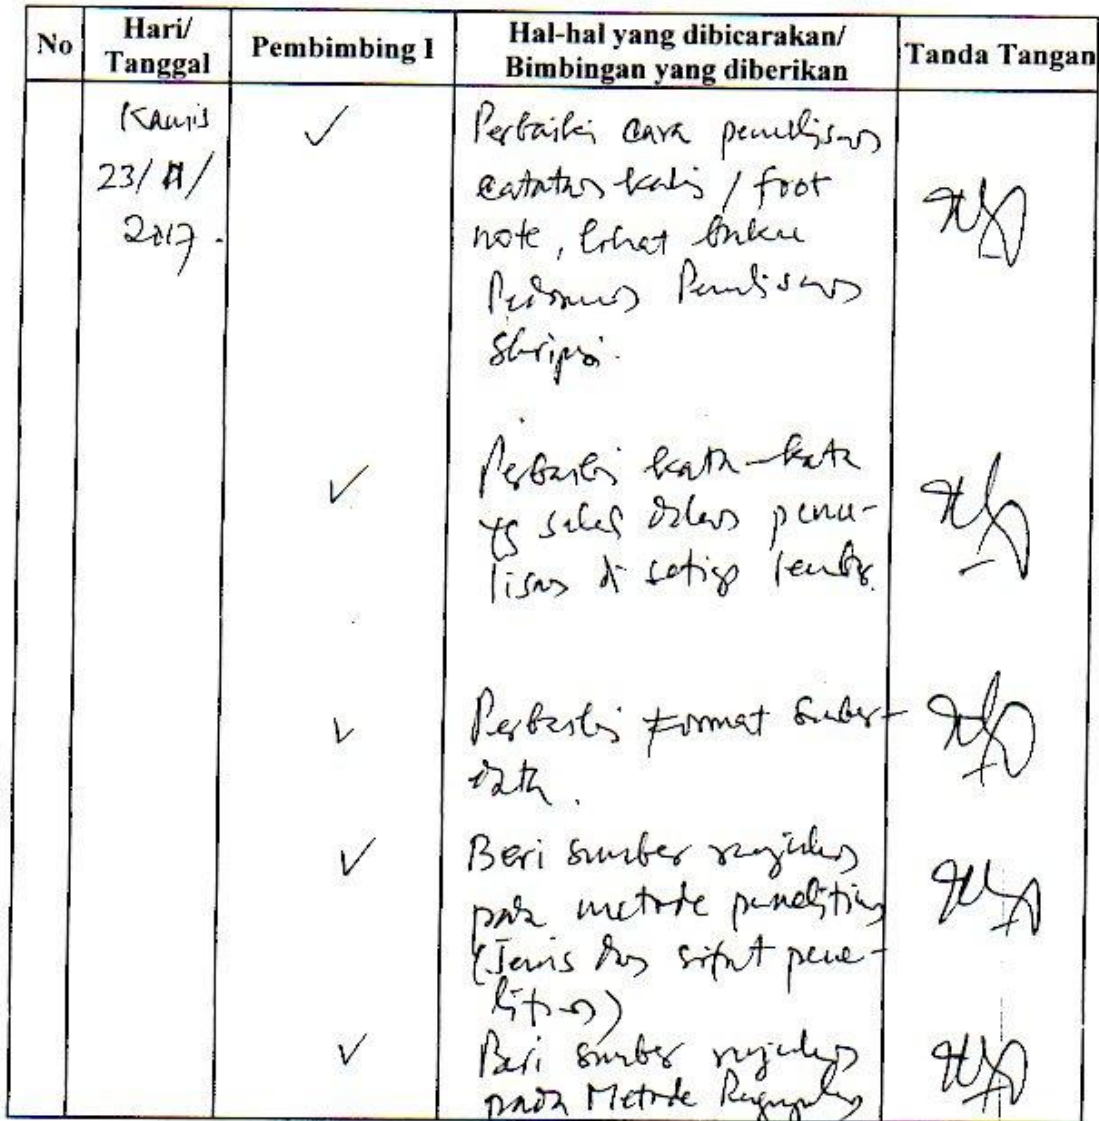 No
Hari/
Tanggal
Pembimbing I
Hal-hal yang dibicarakan/
Bimbingan yang diberikan
Tanda Tangan
Kamis
23/11/
2017.
Perbaiki cara penulisan
catatan kaki / foot
note, lihat buku
Pedoman Penulisan
Skripsi.
Perbaiki kata-kata
yg salah dalam penu-
lisan di setiap lembar.
Perbaiki Format sumber
data.
Beri sumber rujukan
pada metode penelitian
(Jenis dan sifat pene-
litian)
Beri sumber rujukan
pada Metode